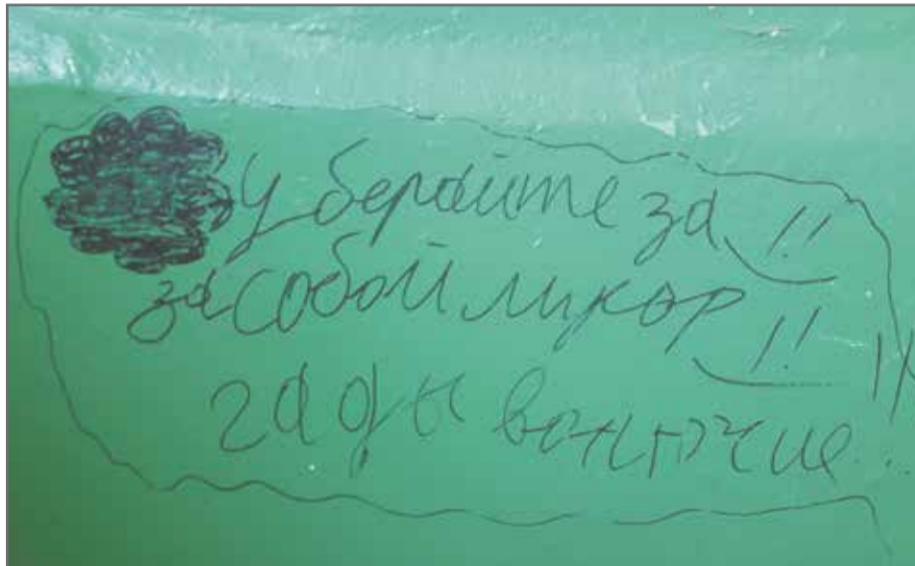 Уберайте за !!
за собой мусор !!
гады вонючие...